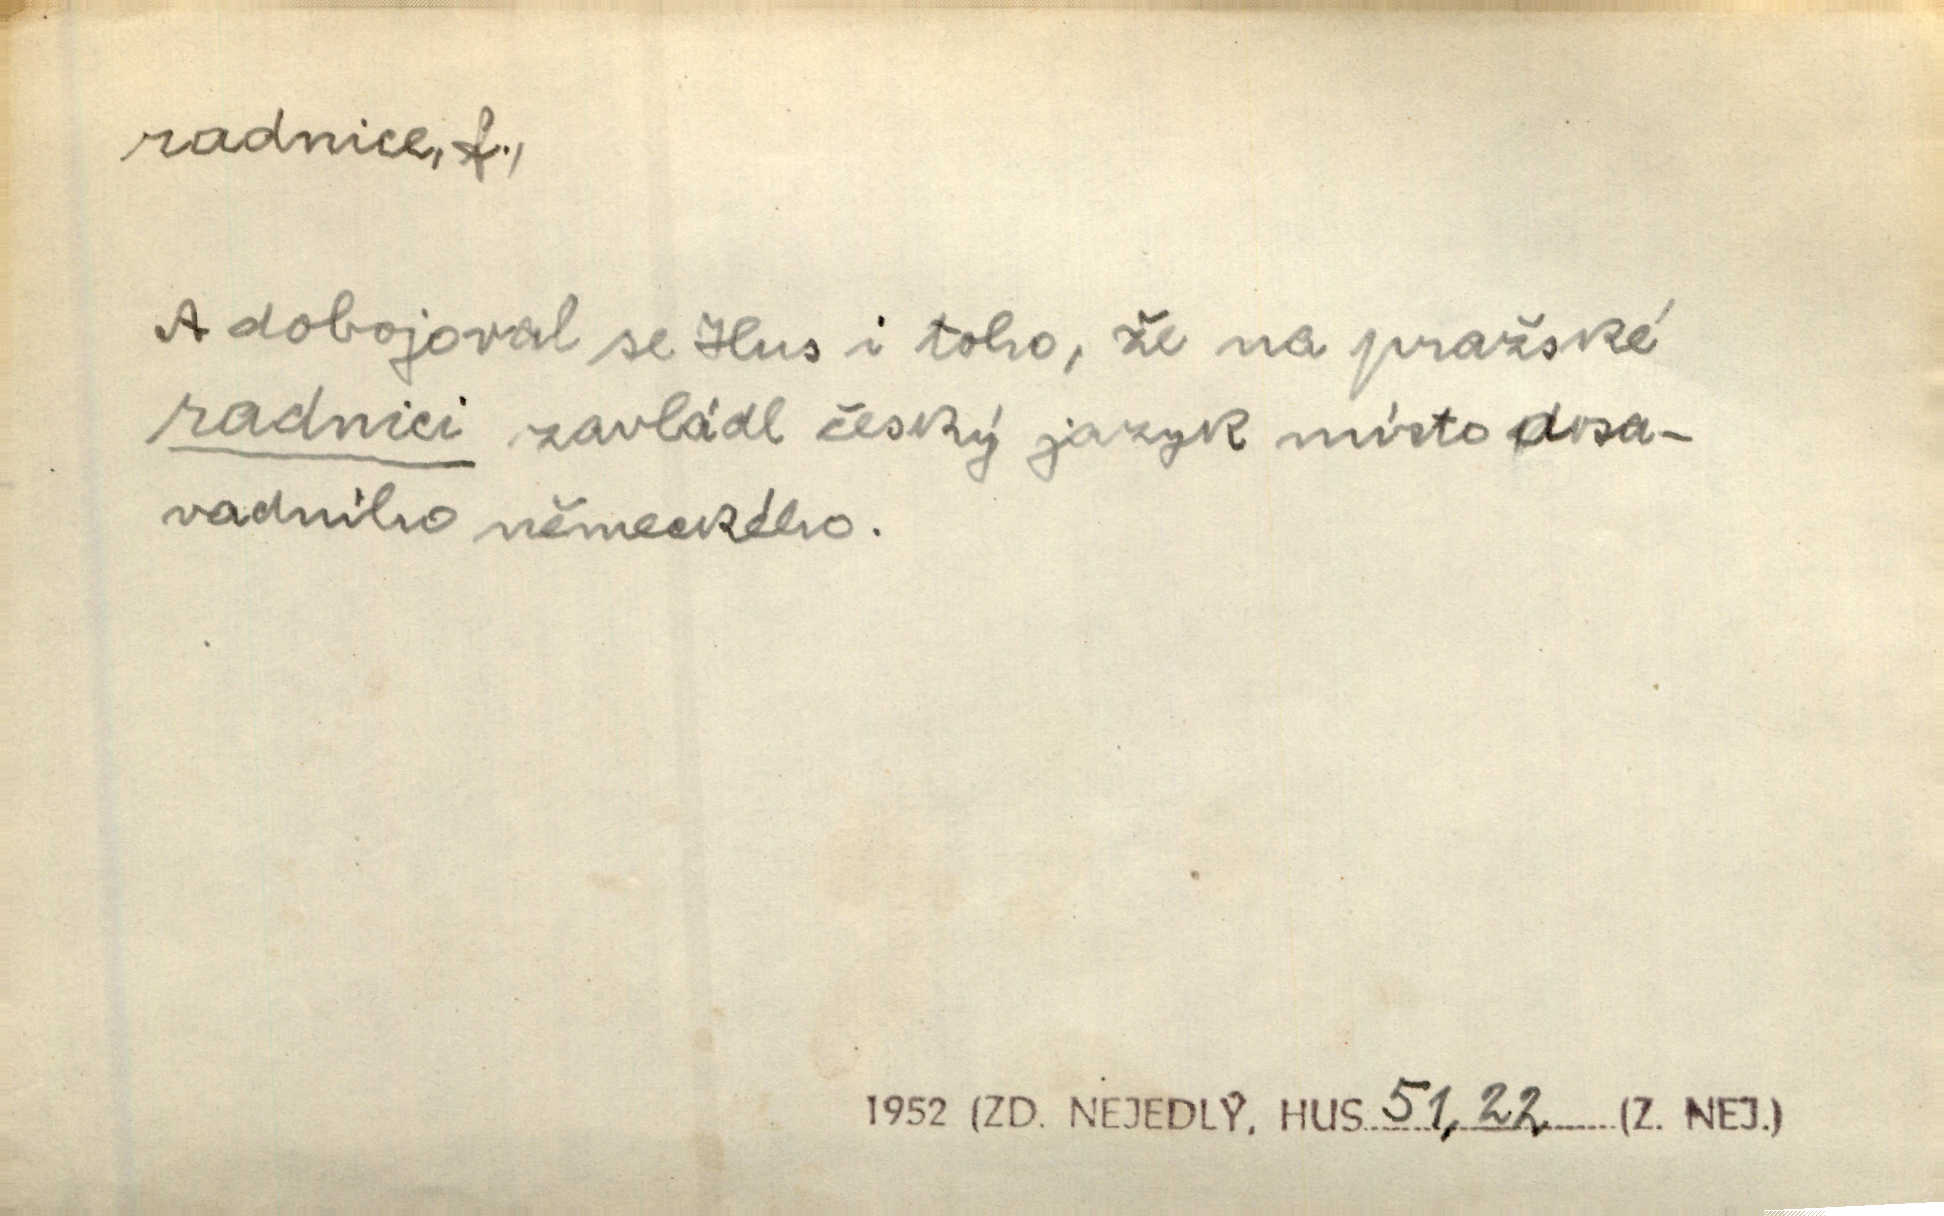 radnice, f.,
A dobojoval se Hus i toho, že na pražské
radnici zavládl český jazyk místo dosa-
vadního německého.
1952 (ZD. NEJEDLÝ, HUS 51, 22 (Z. NEJ.)